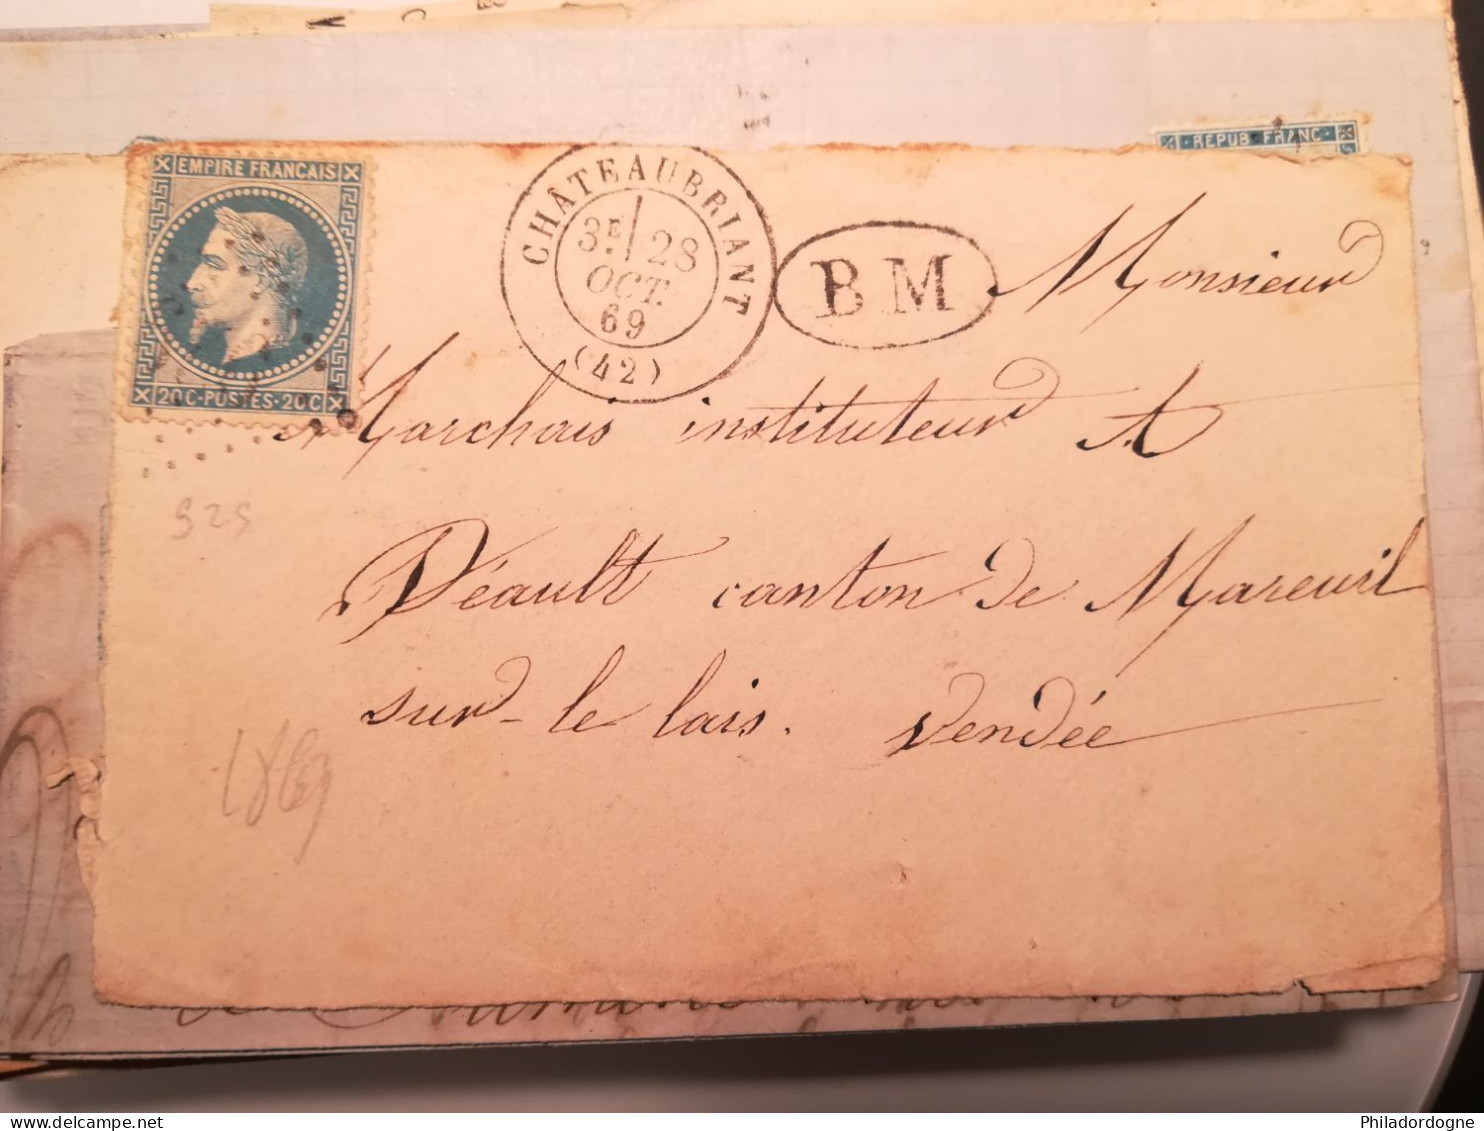 REPUB FRANC
EMPIRE FRANCAIS
20C·POSTES·20C
CHÂTEAUBRIANT
3E 28
OCT.
69
(42)
BM
Monsieur
Marchais instituteur A
Déault canton de Mareuil
sur le lais. Vendée
525
1869
Philadordogne